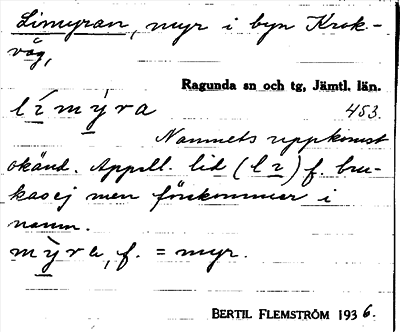 Limyran, myr i byn Krok-
våg,
Ragunda sn och tg, Jämtl. län.
límýra 453.
Namnets uppkomst
okänd. Appell. lid (lɩ) f. bru-
kas ej men förekommer i
namn.
mýra, f. = myr.
BERTIL FLEMSTRÖM 1936.